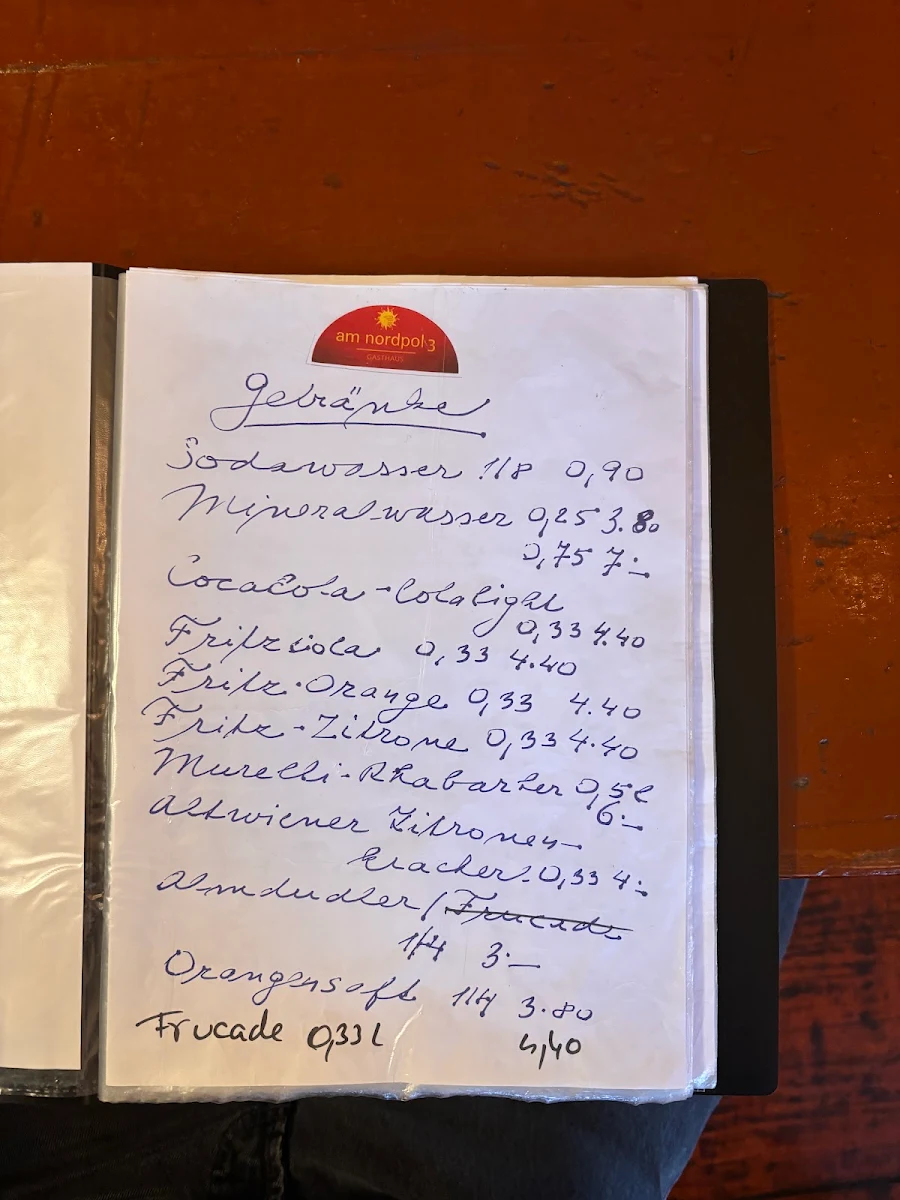 am nordpol 3
GASTHAUS
Getränke
Sodawasser 1/8 0,90
Mineralwasser 0,25 3.80
0,75 7.–
CocaCola - Colalight
0,33 4.40
Fritzcola 0,33 4.40
Fritz-Orange 0,33 4.40
Fritz-Zitrone 0,33 4.40
Murelli-Rhabarber 0,5l
6.–
Altwiener Zitronen-
kracherl 0,33 4.–
Almdudler / Frucade
1/4 3.–
Orangensaft 1/4 3.80
Frucade 0,33 l 4,40